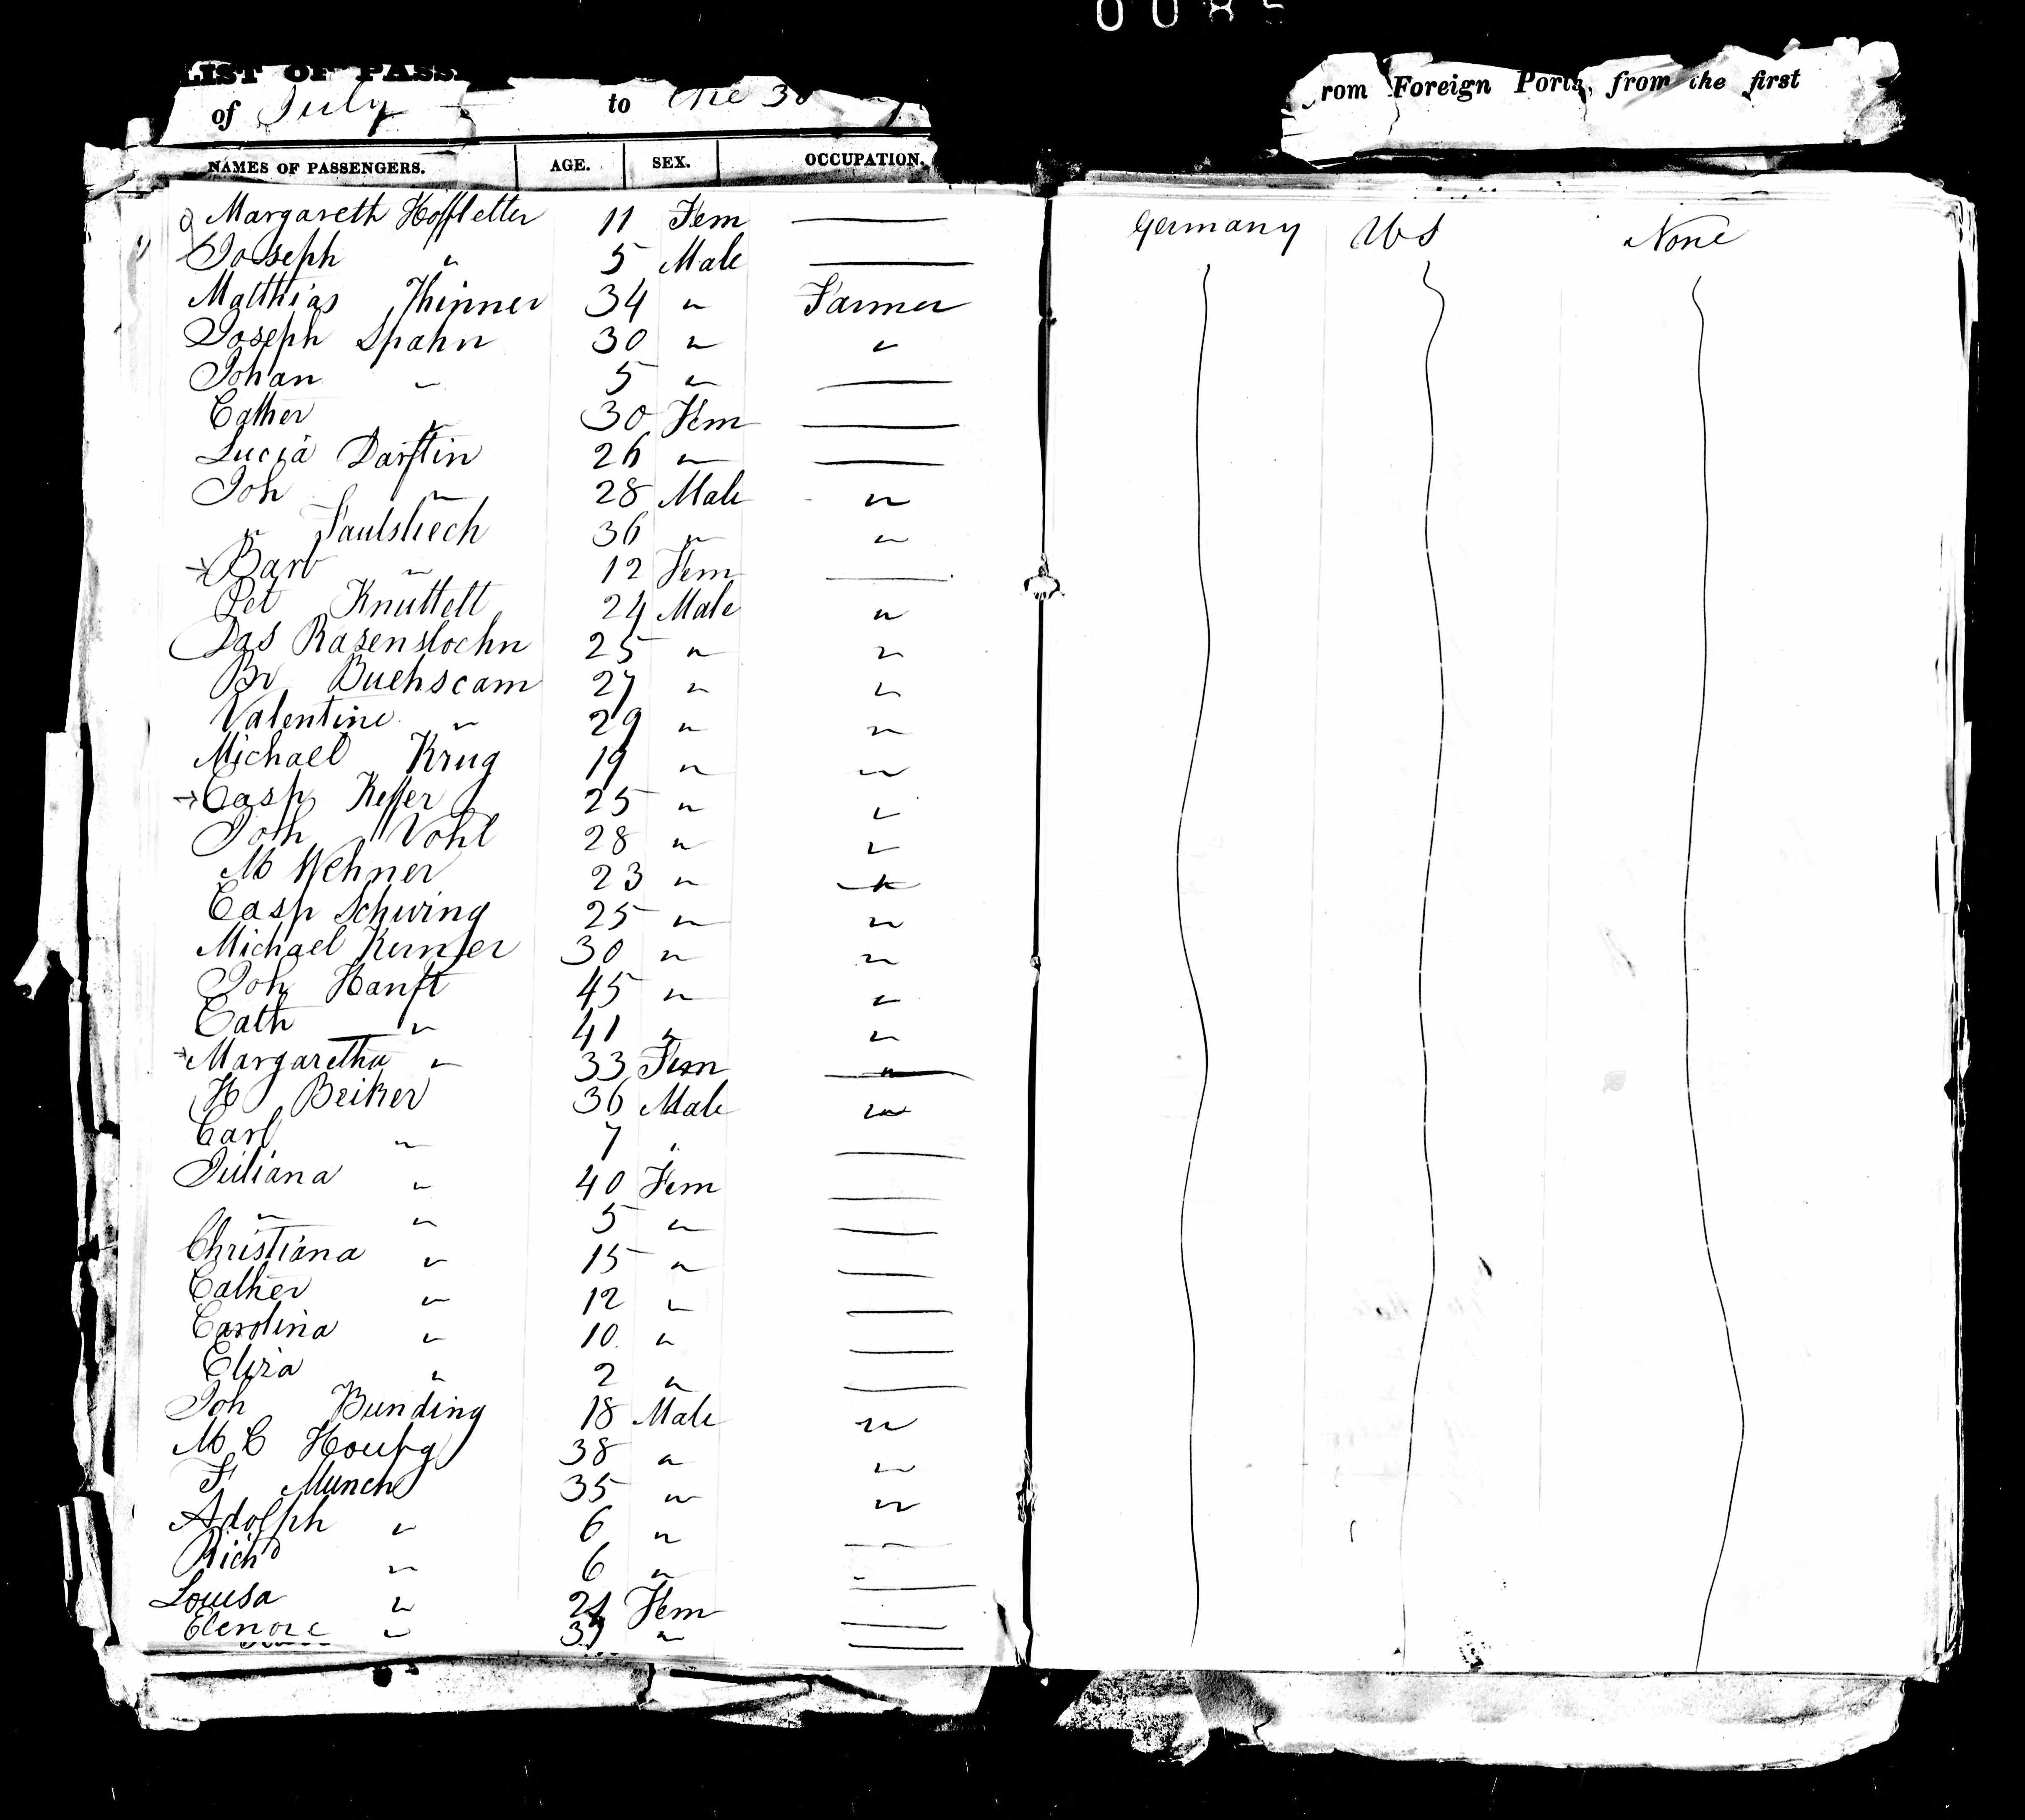 0085
LIST OF PASS
of July to the 30
rom Foreign Ports, from the first
NAMES OF PASSENGERS. AGE. SEX. OCCUPATION.
Margareth Hoffletter 11 Fem —— Germany US None
Joseph " 5 Male ——
Matthias Thinner 34 " Farmer
Joseph Spahn 30 " "
Johan " 5 " ——
Cather " 30 Fem ——
Lucia Darstin 26 " ——
Joh " 28 Male "
" Faulstiech 36 " "
Barb " 12 Fem ——
Pet Knuttelt 24 Male "
Das Rasenstochn 25 " "
Br Buehscam 27 " "
Valentine " 29 " "
Michael Krug 19 " "
Casp Keffer 25 " "
Joh Vohl 28 " "
M Wehner 23 " "
Casp Schwing 25 " "
Michael 30 " "
Joh Hanft 45 " "
Cath " 41 " "
Margaretha " 33 Fem "
H Beiker 36 Male "
Carl " 7 " ——
Juliana " 40 Fem ——
" " 5 " ——
Christiana " 15 " ——
Cather " 12 " ——
Carolina " 10 " ——
Eliza " 2 " ——
Joh Bunding 18 Male "
M C 38 " "
F Munch 35 " "
Adolph " 6 " ——
Richd " 6 " ——
Louisa " Fem ——
Elenore " " ——